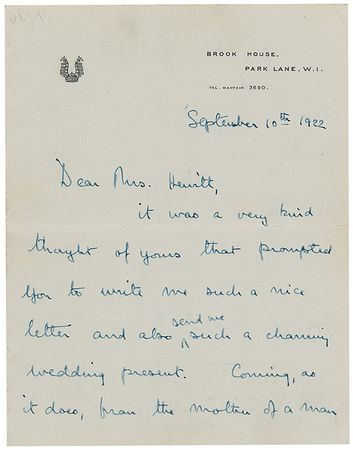 BROOK HOUSE,
PARK LANE, W.1.
TEL. MAYFAIR 3690.
September 10th 1922
Dear Mrs. Hewitt,
it was a very kind
thought of yours that prompted
you to write me such a nice
send me
letter and also such a charming
wedding present. Coming, as
it does, from the mother of a man